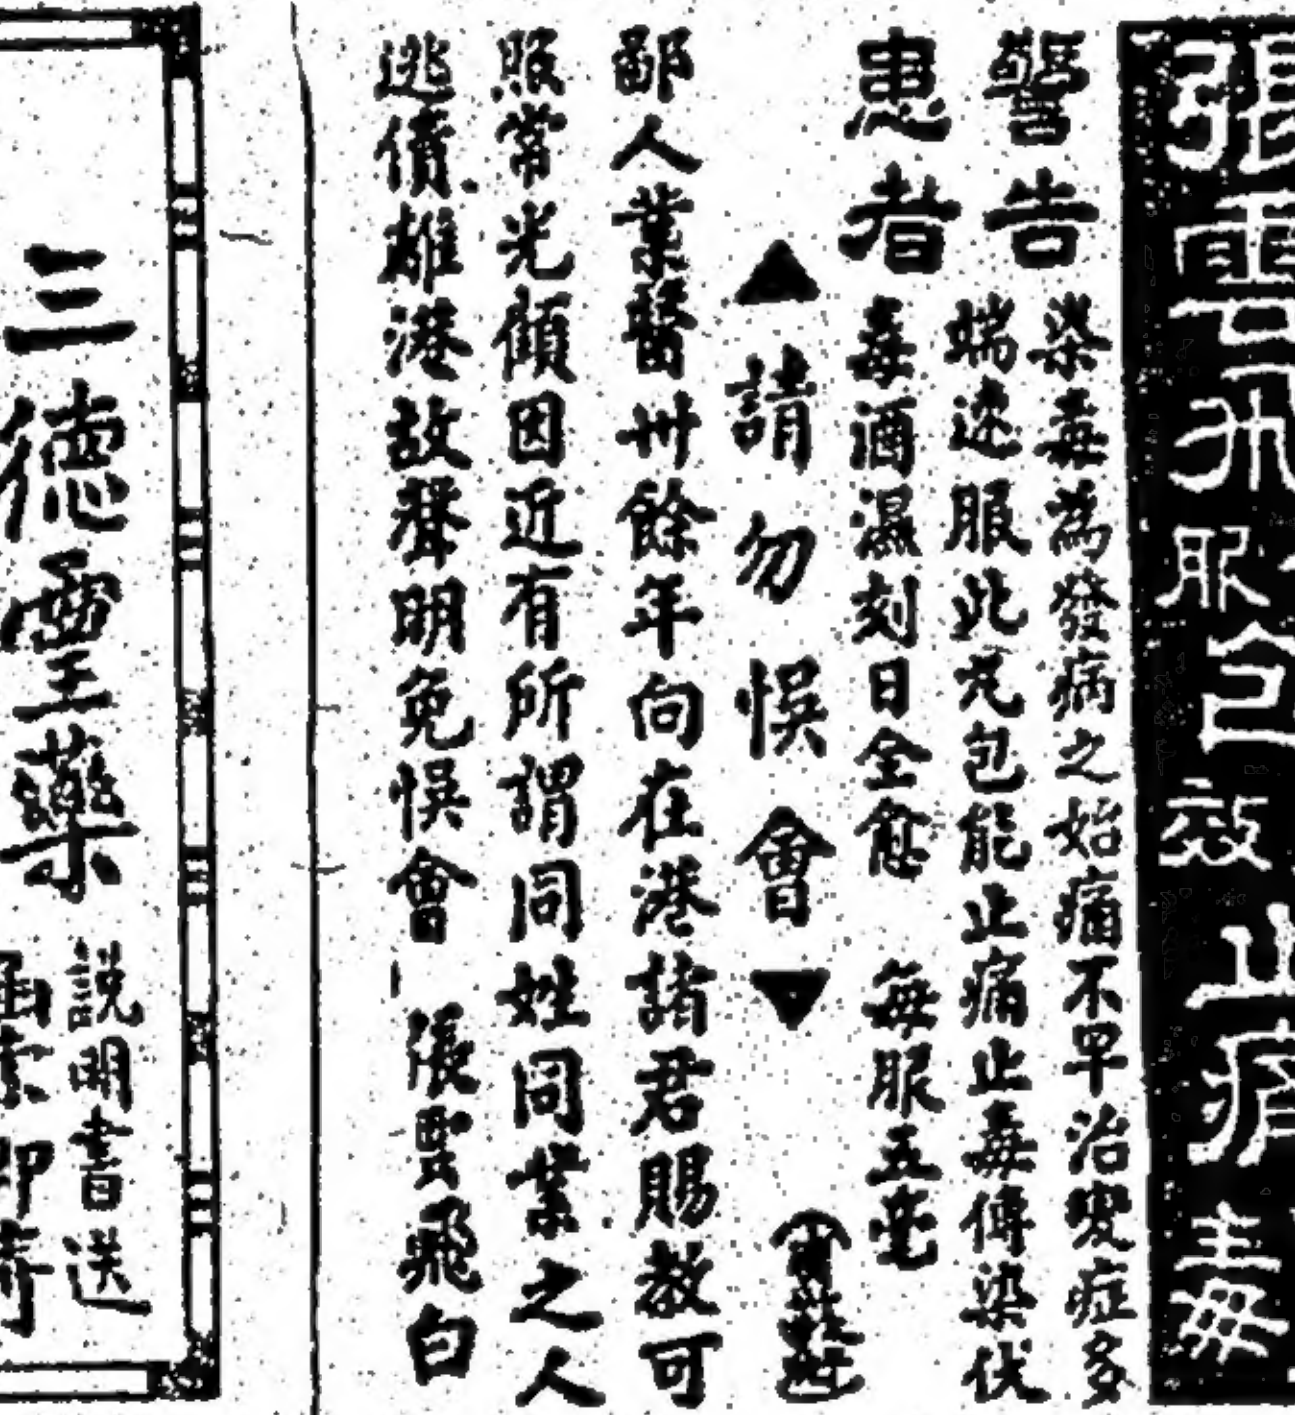 張雲飛包止疼
服效毒
警告
患者
染毒為發病之始痛不早治變症多
端速服此元包能止痛止毒傳染伏
毒酒濕刻日全愈 每服五毫
▲請勿悮會▼
鄙人業醫卅餘年向在港諸君賜教可
照常光顧因近有所謂同姓同業之人
逃債離港故聲明免悮會 張雲飛白
三德靈藥
説明書送
函索即寄